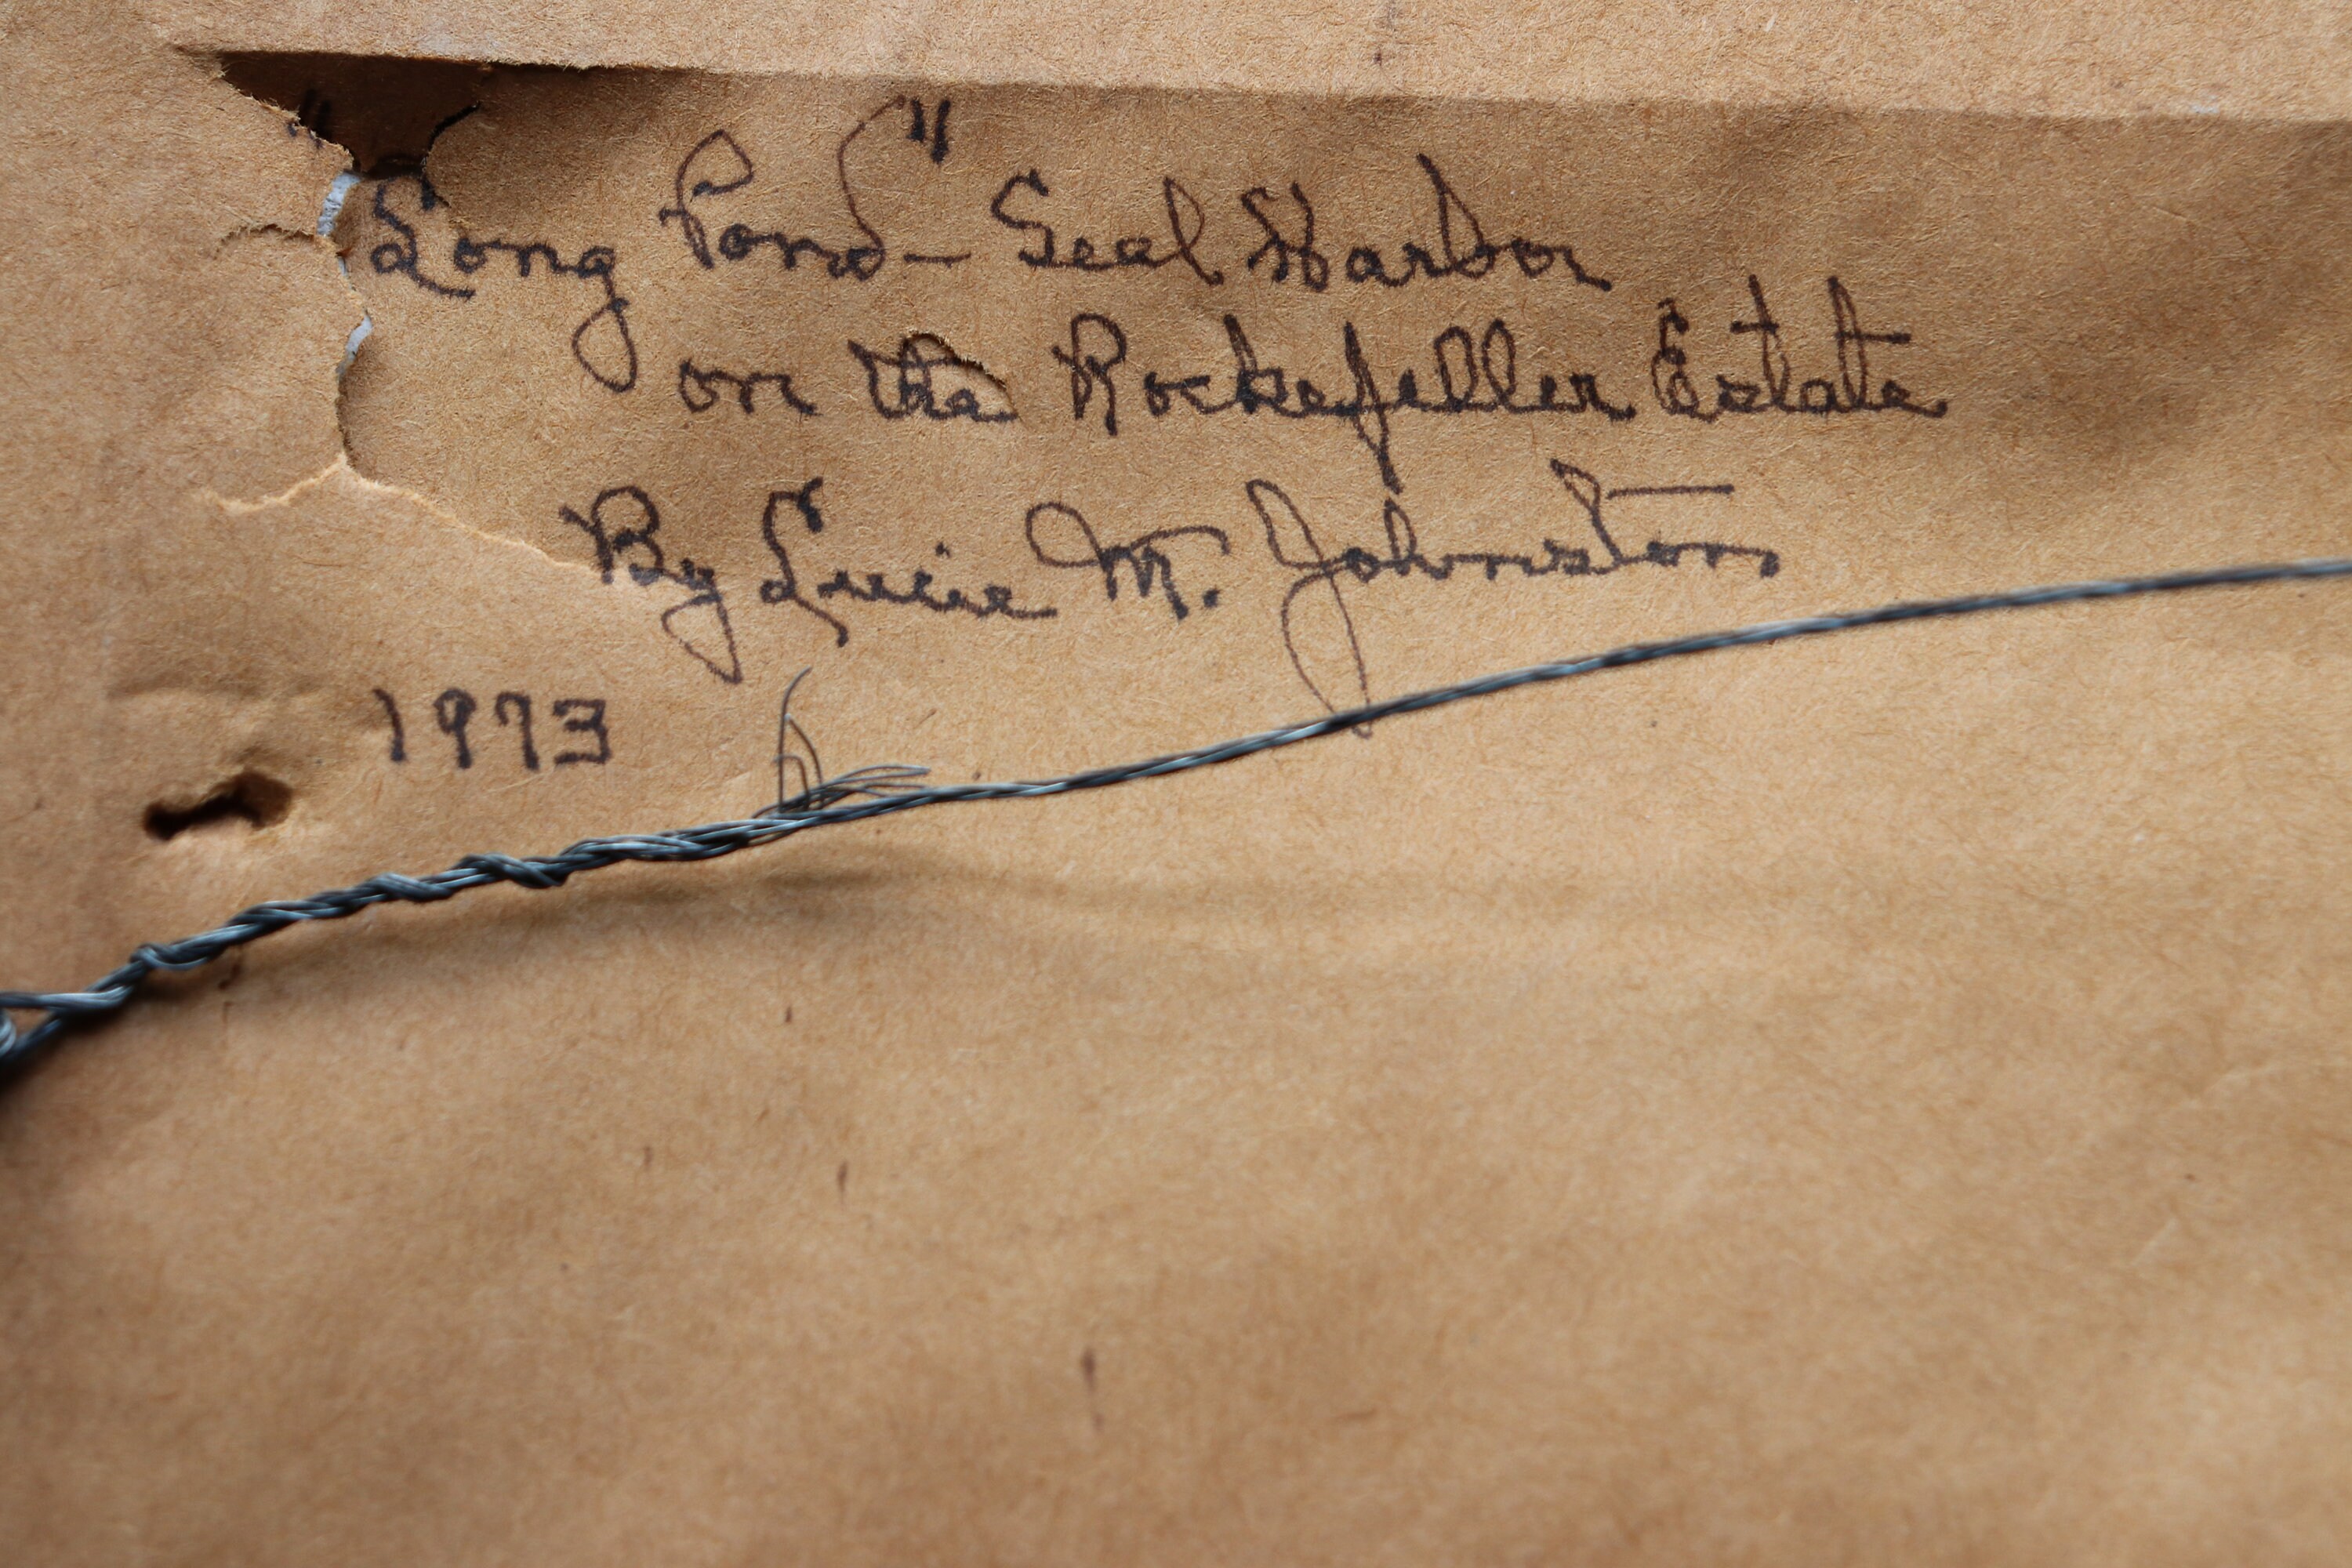 "Long Pond" - Seal Harbor
on the Rockefeller Estate
By Lucie M. Johnston
1973